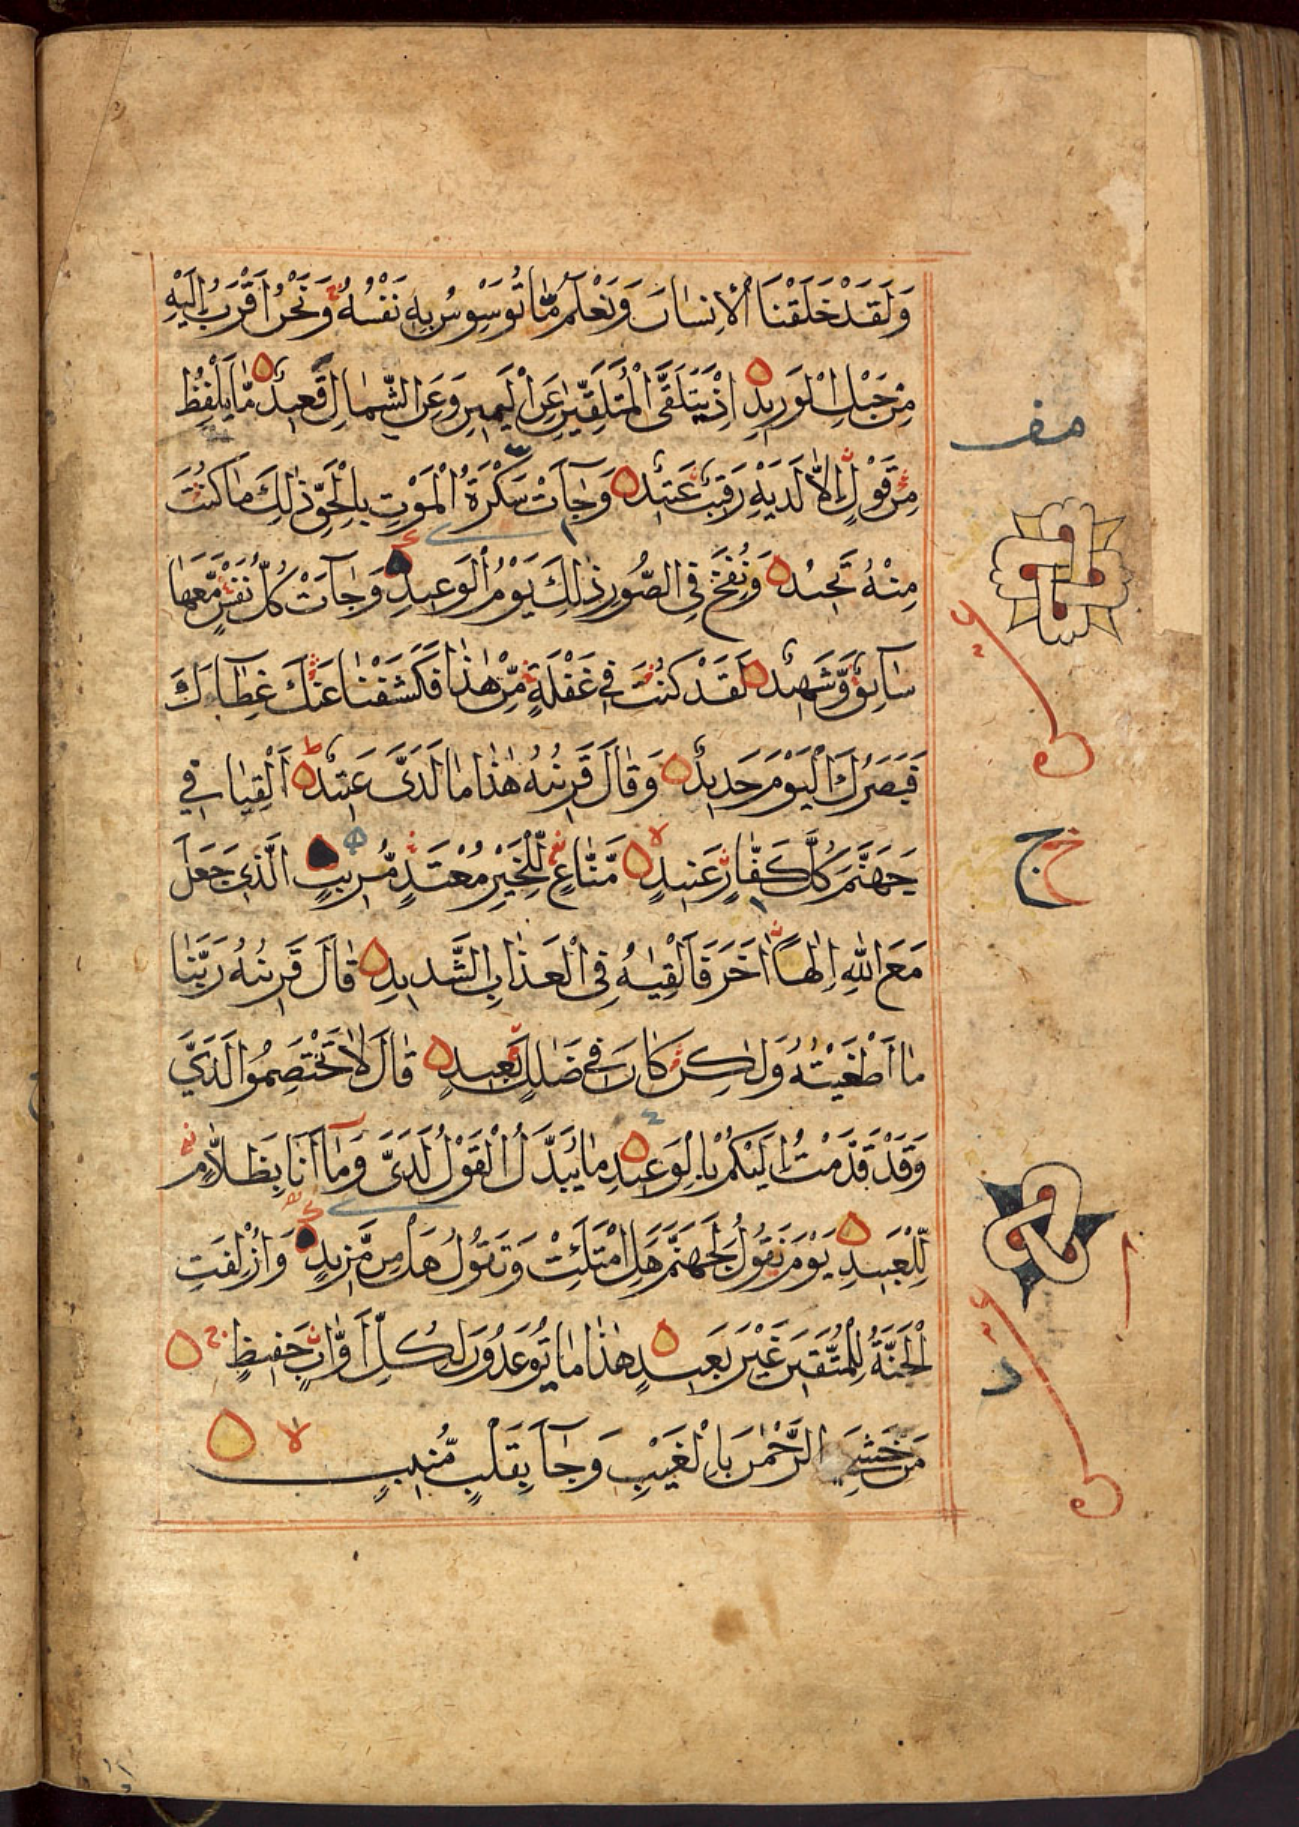 وَلَقَدْ خَلَقْنَا الْاِنسٰانَ وَنَعْلَمُ مٰا تُوَسْوِسُ بِهٖ نَفْسُهُ وَنَحْنُ اَقْرَبُ اِلَيْهِ
مِنْ حَبْلِ الْوَرِيدِ اِذْ يَتَلَقَّى الْمُتَلَقِّيٰنِ عَنِ الْيَمِينِ وَعَنِ الشِّمٰالِ قَعِيدٌ مٰا يَلْفِظُ
مِنْ قَوْلٍ اِلَّا لَدَيْهِ رَقِيبٌ عَتِيدٌ وَجٰآءَتْ سَكْرَةُ الْمَوْتِ بِالْحَقِّ ذٰلِكَ مٰا كُنْتَ
مِنْهُ تَحِيدُ وَنُفِخَ فِي الصُّورِ ذٰلِكَ يَوْمُ الْوَعِيدِ وَجٰآءَتْ كُلُّ نَفْسٍ مَّعَهٰا
سٰآئِقٌ وَّشَهِيدٌ لَقَدْ كُنْتَ فِي غَفْلَةٍ مِّنْ هٰذٰا فَكَشَفْنٰا عَنْكَ غِطٰآءَكَ
فَبَصَرُكَ الْيَوْمَ حَدِيدٌ وَقٰالَ قَرِينُهُ هٰذٰا مٰا لَدَيَّ عَتِيدٌ اَلْقِيٰا فِي
جَهَنَّمَ كُلَّ كَفّٰارٍ عَنِيدٍ مَّنّٰاعٍ لِّلْخَيْرِ مُعْتَدٍ مُّرِيبٍ الَّذِي جَعَلَ
مَعَ اللّٰهِ اِلٰهًا اٰخَرَ فَاَلْقِيٰهُ فِي الْعَذٰابِ الشَّدِيدِ قٰالَ قَرِينُهُ رَبَّنٰا
مٰا اَطْغَيْتُهُ وَلٰكِنْ كٰانَ فِي ضَلٰلٍ بَعِيدٍ قٰالَ لٰا تَخْتَصِمُوا لَدَيَّ
وَقَدْ قَدَّمْتُ اِلَيْكُمْ بِالْوَعِيدِ مٰا يُبَدَّلُ الْقَوْلُ لَدَيَّ وَمٰآ اَنَا بِظَلّٰامٍ
لِّلْعَبِيدِ يَوْمَ نَقُولُ لِجَهَنَّمَ هَلِ امْتَلَئْتِ وَتَقُولُ هَلْ مِنْ مَّزِيدٍ وَاُزْلِفَتِ
الْجَنَّةُ لِلْمُتَّقِينَ غَيْرَ بَعِيدٍ هٰذٰا مٰا تُوعَدُونَ لِكُلِّ اَوّٰابٍ حَفِيظٍ
مَنْ خَشِيَ الرَّحْمٰنَ بِالْغَيْبِ وَجٰآءَ بِقَلْبٍ مُّنِيبٍ